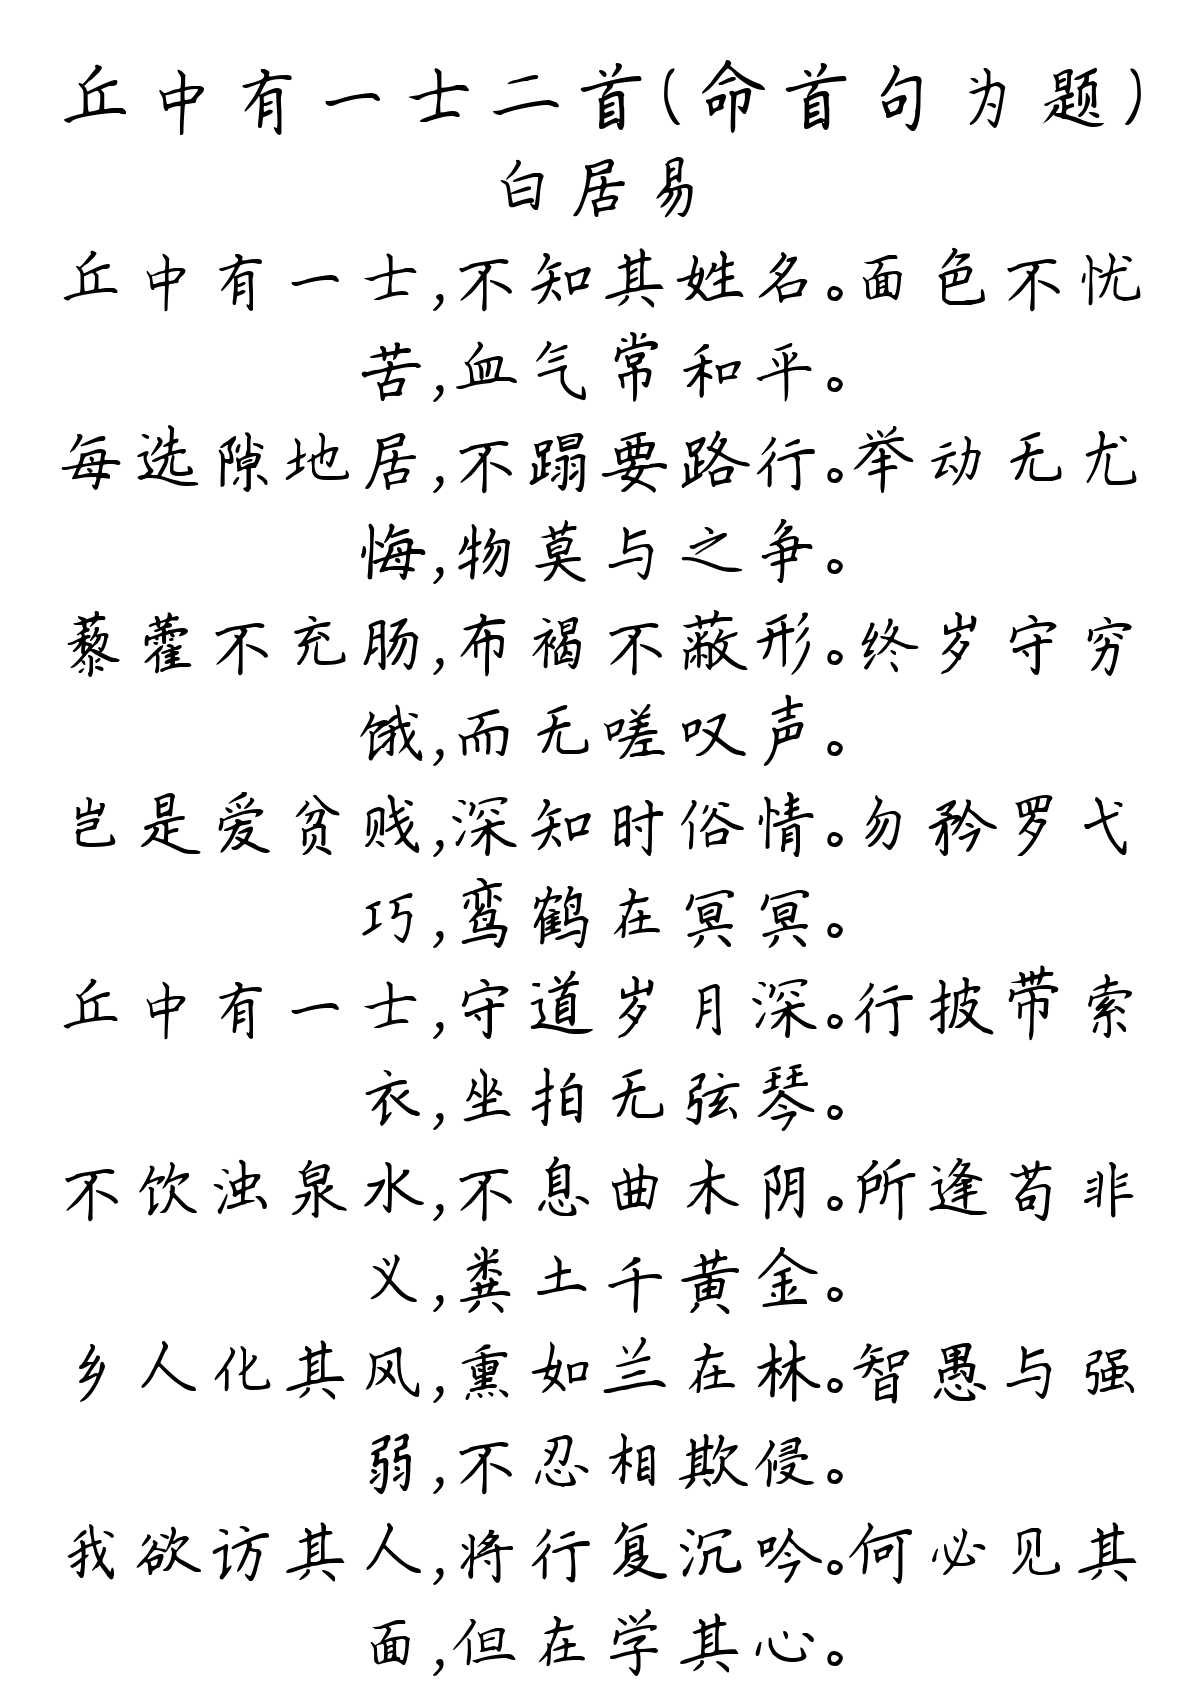 丘中有一士二首(命首句为题)
白居易
丘中有一士,不知其姓名。面色不忧
苦,血气常和平。
每选隙地居,不蹋要路行。举动无尤
悔,物莫与之争。
藜藿不充肠,布褐不蔽形。终岁守穷
饿,而无嗟叹声。
岂是爱贫贱,深知时俗情。勿矜罗弋
巧,鸾鹤在冥冥。
丘中有一士,守道岁月深。行披带索
衣,坐拍无弦琴。
不饮浊泉水,不息曲木阴。所逢苟非
义,粪土千黄金。
乡人化其风,熏如兰在林。智愚与强
弱,不忍相欺侵。
我欲访其人,将行复沉吟。何必见其
面,但在学其心。